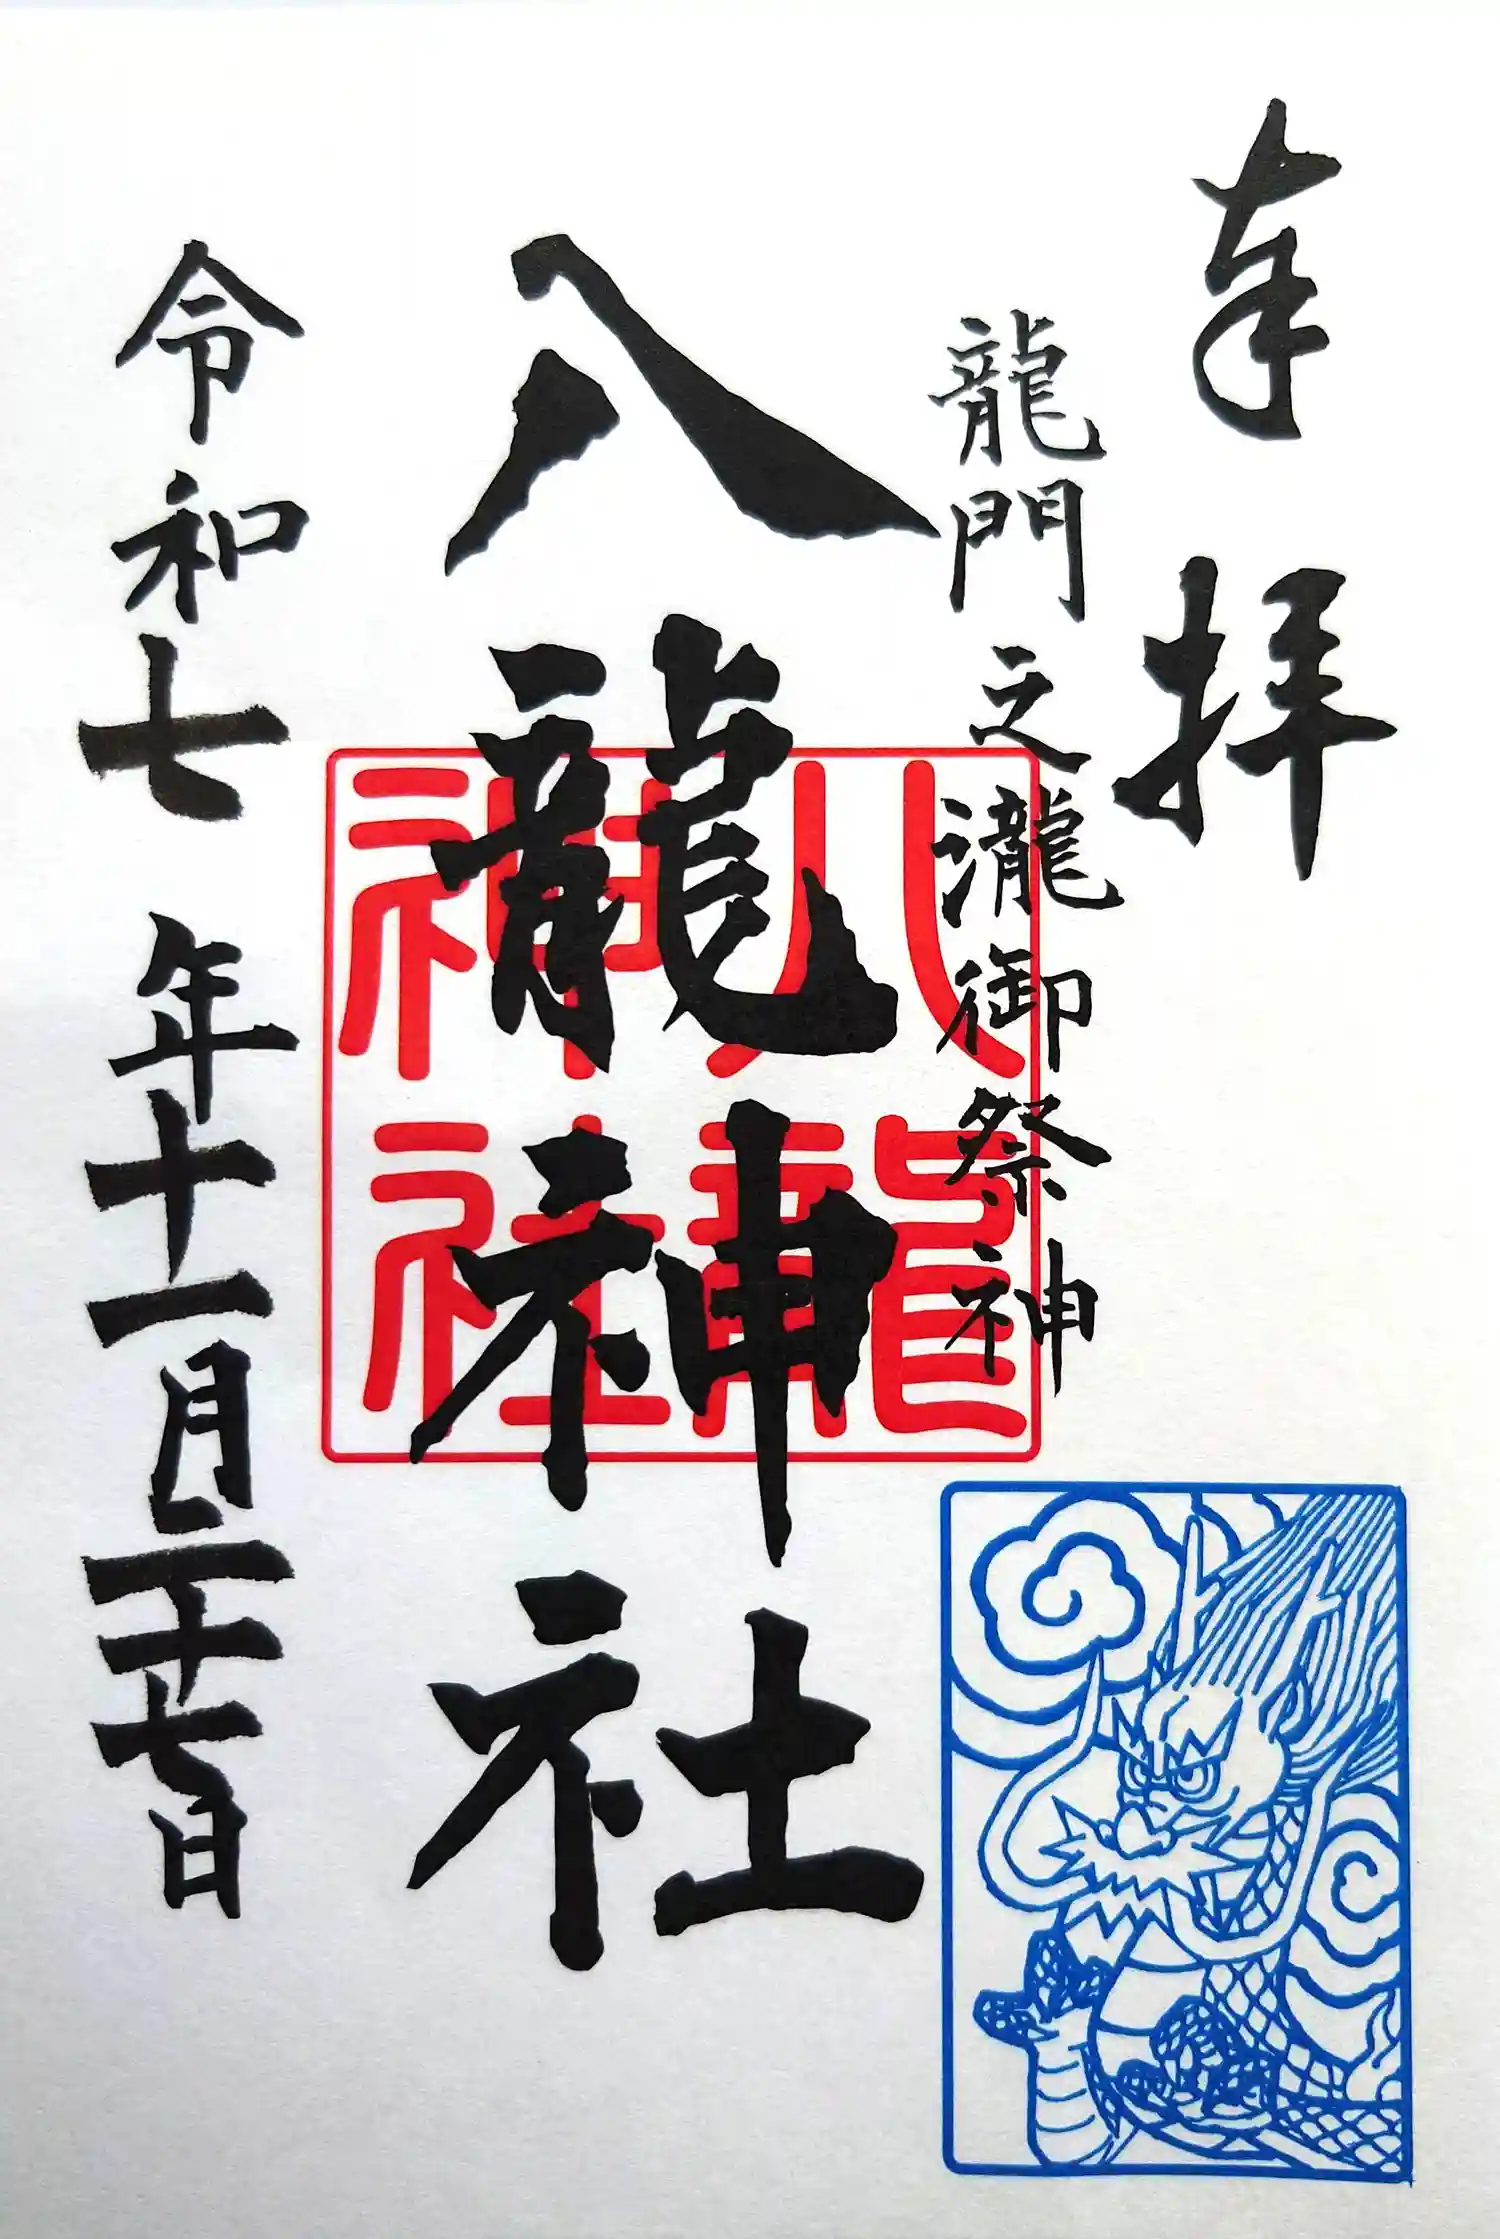 奉拝
龍門之瀧御祭神
八龍神社
八龍
神社
令和七年十一月二十七日